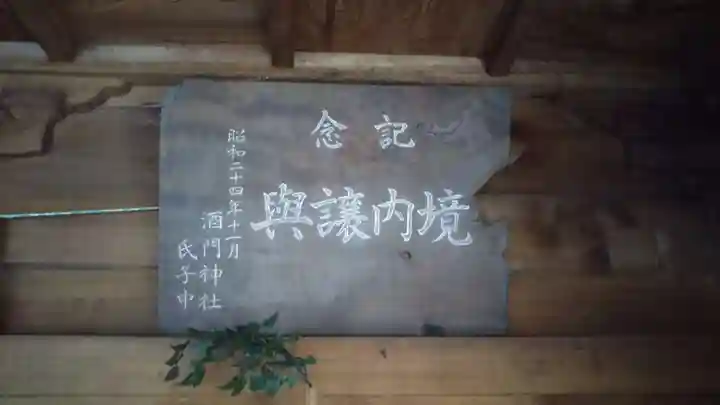 記念
境内譲與
昭和二十四年十二月
酒門神社
氏子中